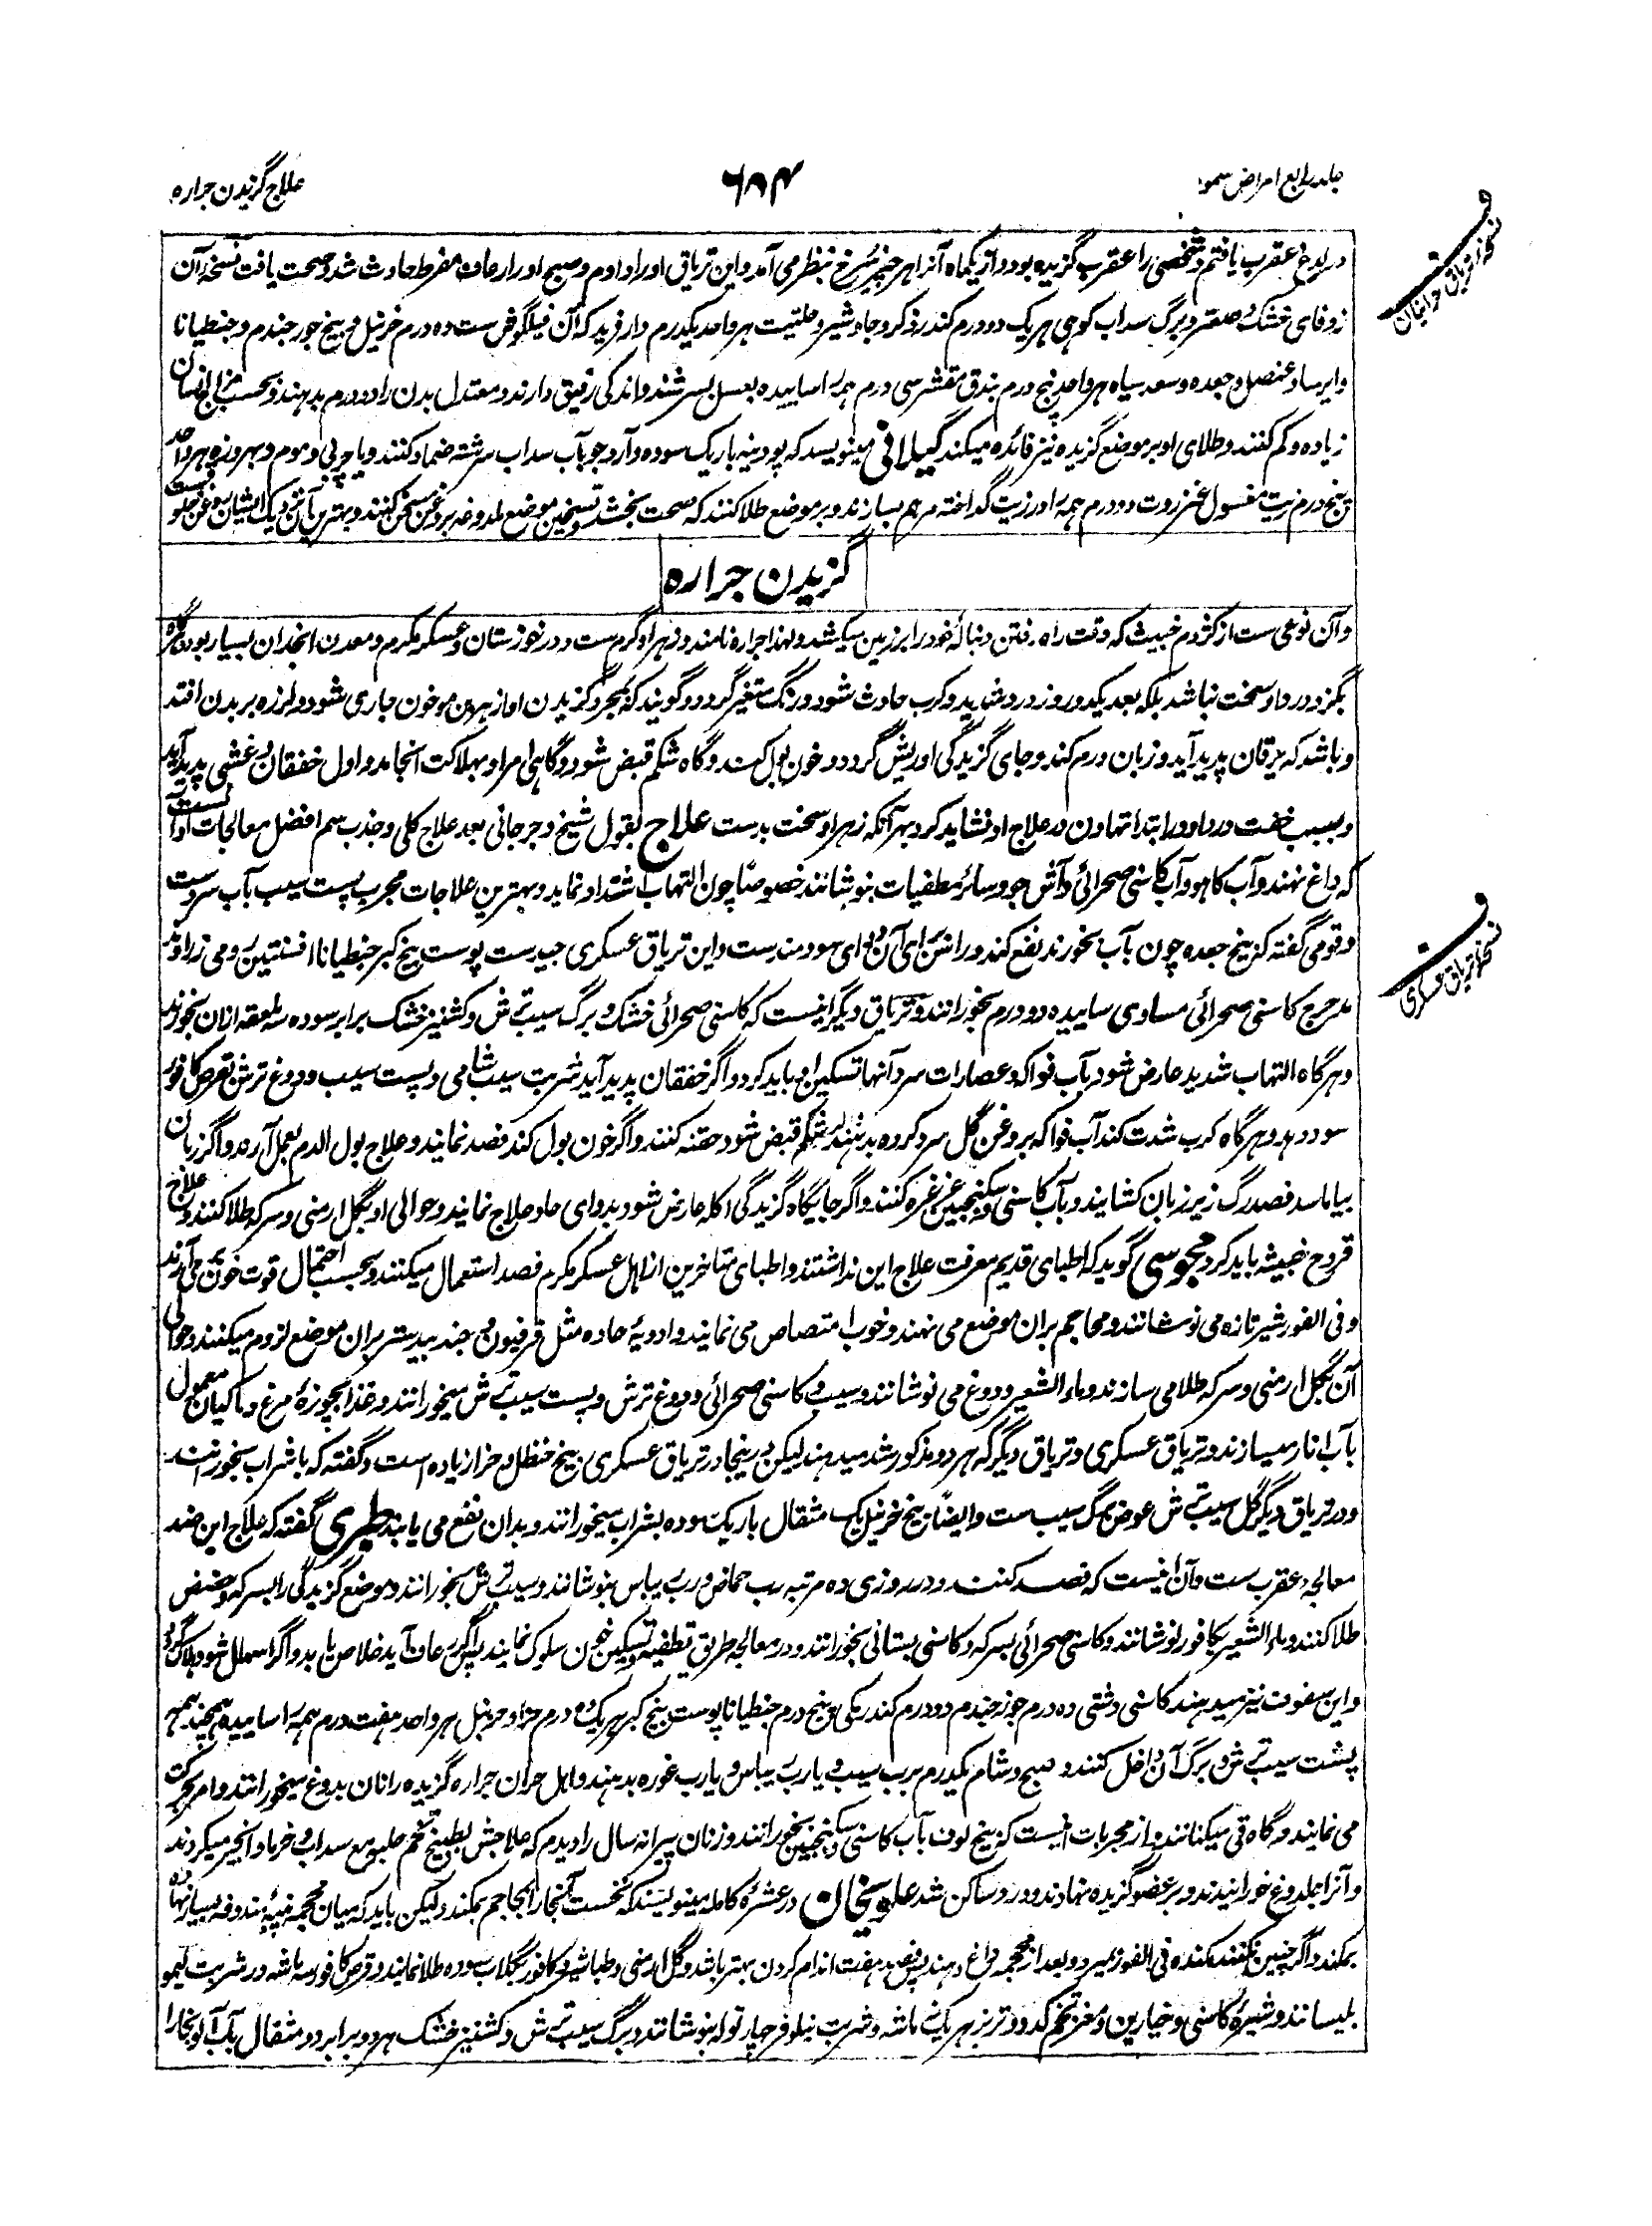 جلد رابع امراض سموم
۶۸۴
علاج گزیدن جراره
در لدغ عقرب یافتم و شخصی را عقرب گزیده بود و از یکماه آنرا هر چیز سرخ بنظر می آمد و این تریاق او را دادم و صبح او را رعاف مفرط حادث شد و صحت یافت نسخه آن
زوفای خشک و صعتر و برگ سداب کوهی هر یک دو درم کندر ذکر و جاوشیر و حلتیت هر واحد یکدرم دار فرید که آن فیلگوش ست ده درم خرنبل و بیخ جور جندم و جنطیانا
و ایرسا و عنصل و جعده و سعد سیاه هر واحد پنج درم بندق مقشر سی درم همه را ساییده بعسل بسرشند و اندکی رقیق دارند و معتدل بدن را دو درم بدهند و بحسب مزاج انسان
زیاده و کم کنند و طلای او بر موضع گزیده نیز فائده میکند گیلانی مینویسد که پودینه باریک سوده و آرد جو بآب سداب سرشته ضماد کنند و یا چربی و موم و بهروزه هر واحد
پنج درم زیت مغسول عنزروت ده درم همه را در زیت گداخته مرهم بسازند و بر موضع طلا کنند که صحت بخشد و تسخین موضع لدوغه بروغن سخن کنند و بهترین آن نزدیک ایشان روغن جلوست
گزیدن جراره
و آن نوعی ست از کژدم خبیث که وقت راه رفتن دنباله خود را بر زمین میکشد و لهذا جراره نامند و زهر او گرم ست و در خوزستان و عسکر مکرم و معدن انجدان بسیار بود و گاه
بگزد درد او سخت نباشد بلکه بعد یکدو روز درد شدید و کرب حادث شود و رنگ متغیر گردد و گویند که بمجرد گزیدن او از هر بن مو خون جاری شود و لرزه بر بدن افتد
و باشد که یرقان پدید آید و زبان ورم کند و جای گزیدگی او ریش گردد و خون بول کند و گاه شکم قبض شود و گاهی امر او بهلاکت انجامد و اول خفقان و غشی پدید آید
و بسبب خفت درد او در ابتدا تهاون در علاج او نشاید کرد بهر آنکه زهر او سخت بدست علاج بقول شیخ و جرجانی بعد علاج کلی و جذب سم افضل معالجات او آنست
که داغ نهند و آب کاهو و آب کاسنی صحرائی و آش جو و سائر مطفیات بنوشانند خصوصاً چون التهاب اشتداد نماید و بهترین علاجات مجرب پست سیب بآب سردست
و قومی گفته که بیخ جعده چون بآب بخورند نفع کند و راسن برای آن دوای سودمندست و این تریاق عسکری جیدست پوست بیخ کبر جنطیانا افسنتین رومی زراوند
مدحرج کاسنی صحرائی مساوی ساییده دو درم بخورانند و تریاق دیگر اینست که کاسنی صحرائی خشک و برگ سیب ترش و کشنیز خشک برابر سوده سه ملعقه ازان بخورند
و هرگاه التهاب شدید عارض شود بآب فواکه و عصارات سرد آنها تسکین او باید کرد و اگر خفقان پدید آید شربت سیب شامی و پست سیب و دوغ ترش بقرص کافور
سود دهد و هرگاه کرب شدت کند آب فواکه بروغن گل سرد کرده بدهند و اگر شکم قبض شود حقنه کنند و اگر خون بول کند فصد نمایند و علاج بول الدم بعمل آرند و اگر زبان
بیاماسد فصد رگ زیر زبان کشایند و بآب کاسنی و سکنجبین غرغره کنند و اگر جایگاه گزیدگی اکله عارض شود بدوای حاد علاج نمایند و حوالی او بگل ارمنی و سرکه طلا کنند و علاج
قروح خبیثه باید کرد مجوسی گوید که اطبای قدیم معرفت علاج این نداشتند و اطبای متاخرین از اهل عسکر مکرم فصد استعمال میکنند و بحسب احتمال قوت خون می آرند
و فی الفور شیر تازه می نوشانند و محاجم بران موضع می نهند و خوب امتصاص می نمایند و ادویه حاده مثل فرفیون و جندبیدستر بران موضع لزوم میکنند و حوالی
آن بگل ارمنی و سرکه طلا می سازند و ماء الشعیر و دوغ می نوشانند و سیب و کاسنی صحرائی و دوغ ترش و پست سیب ترش میخورانند و غذا بچوزه مرغ و ماکیان معمول
بآب انار میسازند و تریاق عسکری و تریاق دیگر که هر دو مذکور شد میدهند لیکن درینجا در تریاق عسکری بیخ حنظل و حزا زیاده است و گفته که با شراب بخورانند
و در تریاق دیگر گل سیب ترش عوض برگ سیب ست و ایضاً بیخ خرنبل یک مثقال باریک سوده بشراب میخورانند و بدان نفع می یابند طبری گفته که علاج این ضد
معالجه عقرب ست و آن اینست که فصد کنند و در روزی ده مرتبه رب حماض و رب ریباس بنوشانند و سیب ترش بخورانند و موضع گزیدگی را بسرکه و حضض
طلا کنند و ماء الشعیر بکافور نوشانند و کاسنی صحرائی بسرکه و کاسنی بستانی بخورانند و در معالجه طریق تطفیه و تسکین خون سلوک نمایند پس اگر رعاف آید خلاص یابد و اگر اسهال شود هلاک گردد
و این سفوف نیز میدهند کاسنی دشتی ده درم جوز جندم دو درم کندر یکی و پنج درم جنطیانا پوست بیخ کبر هر یک ده درم حزا و خرنبل هر واحد هفت درم همه را ساییده همچند همه
پشت سیب ترش و برگ آن داخل کنند و صبح و شام یکدرم برب سیب و یا رب ریباس و یا رب غوره بدهند و اهل حران جراره گزیده را نان بدوغ میخورانند و امر بحرکت
می نمایند و گاه قی میکنانند و از مجربات اینست که بیخ لوف بآب کاسنی و سکنجبین بخورانند و زنان پیرانه سال را دیدم که علاجش بطبیخ تخم حلبه مع سداب و خرما و انجیر میکردند
و آنرا بملدوغ خورانیدند و بر عضو گزیده نهادند و درد ساکن شد علویخان در عشره کامله مینویسند که نخست آنجا را بمحاجم بمکند و لیکن باید که میان محجمه پنبه مندوفه بسیار نهاده
بمکند و اگر چنین نکنند مکنده فی الفور بمیرد و بعد از محجمه داغ دهند و فصد هفت اندام کردن بهتر باشد و گل ارمنی و طباشیر و کافور بگلاب سوده طلا نمایند و قرص کافور سه ماشه در شربت لیمو
بلیسانند و شیره کاسنی و خیارین و مغز تخم کدو و تربز هر یک نه ماشه و شربت نیلوفر چار توله بنوشانند و برگ سیب ترش و کشنیز خشک هر دو برابر دو مثقال بآب آلوبخارا
نسخه تریاق حرانیان
نسخه تریاق عسکری